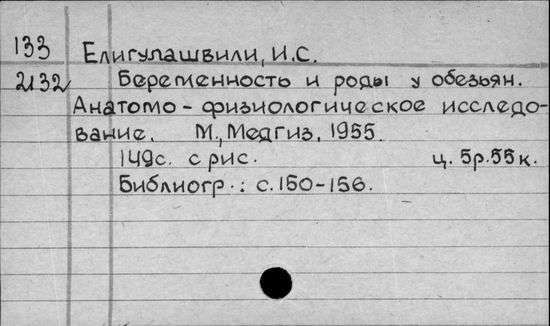 133 Елигулашвили, И.С.
2132 Беременность и роды у обезьян.
Анатомо-физиологическое исследо-
вание. М., Медгиз, 1955.
149с. с рис. ц. 5р.55к.
Библиогр.: с.150-156.